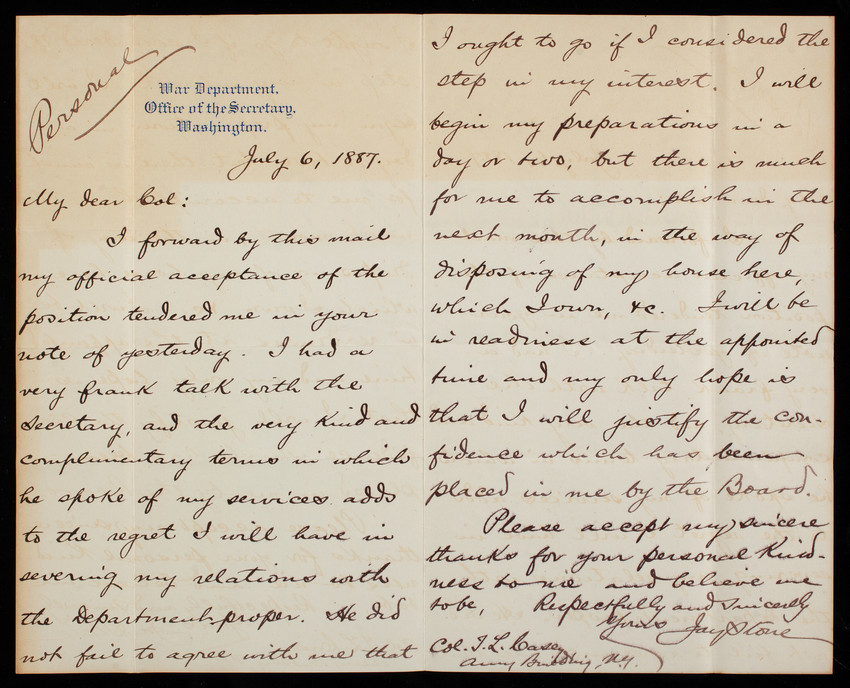 Personal
War Department.
Office of the Secretary,
Washington.
July 6, 1887.
My dear Col:
I forward by this mail
my official acceptance of the
position tendered me in your
note of yesterday. I had a
very frank talk with the
Secretary, and the very kind and
complimentary terms in which
he spoke of my services adds
to the regret I will have in
severing my relations with
the Department proper. He did
not fail to agree with me that
I ought to go if I considered the
step in my interest. I will
begin my preparations in a
day or two, but there is much
for me to accomplish in the
next month, in the way of
disposing of my house here,
which I own, &c. I will be
in readiness at the appointed
time and my only hope is
that I will justify the con-
fidence which has been
placed in me by the Board.
Please accept my sincere
thanks for your personal kind-
ness to me and believe me
to be, Respectfully and sincerely
Yours Jay Stone
Col. T. L. Casey
Army Building, N.Y.